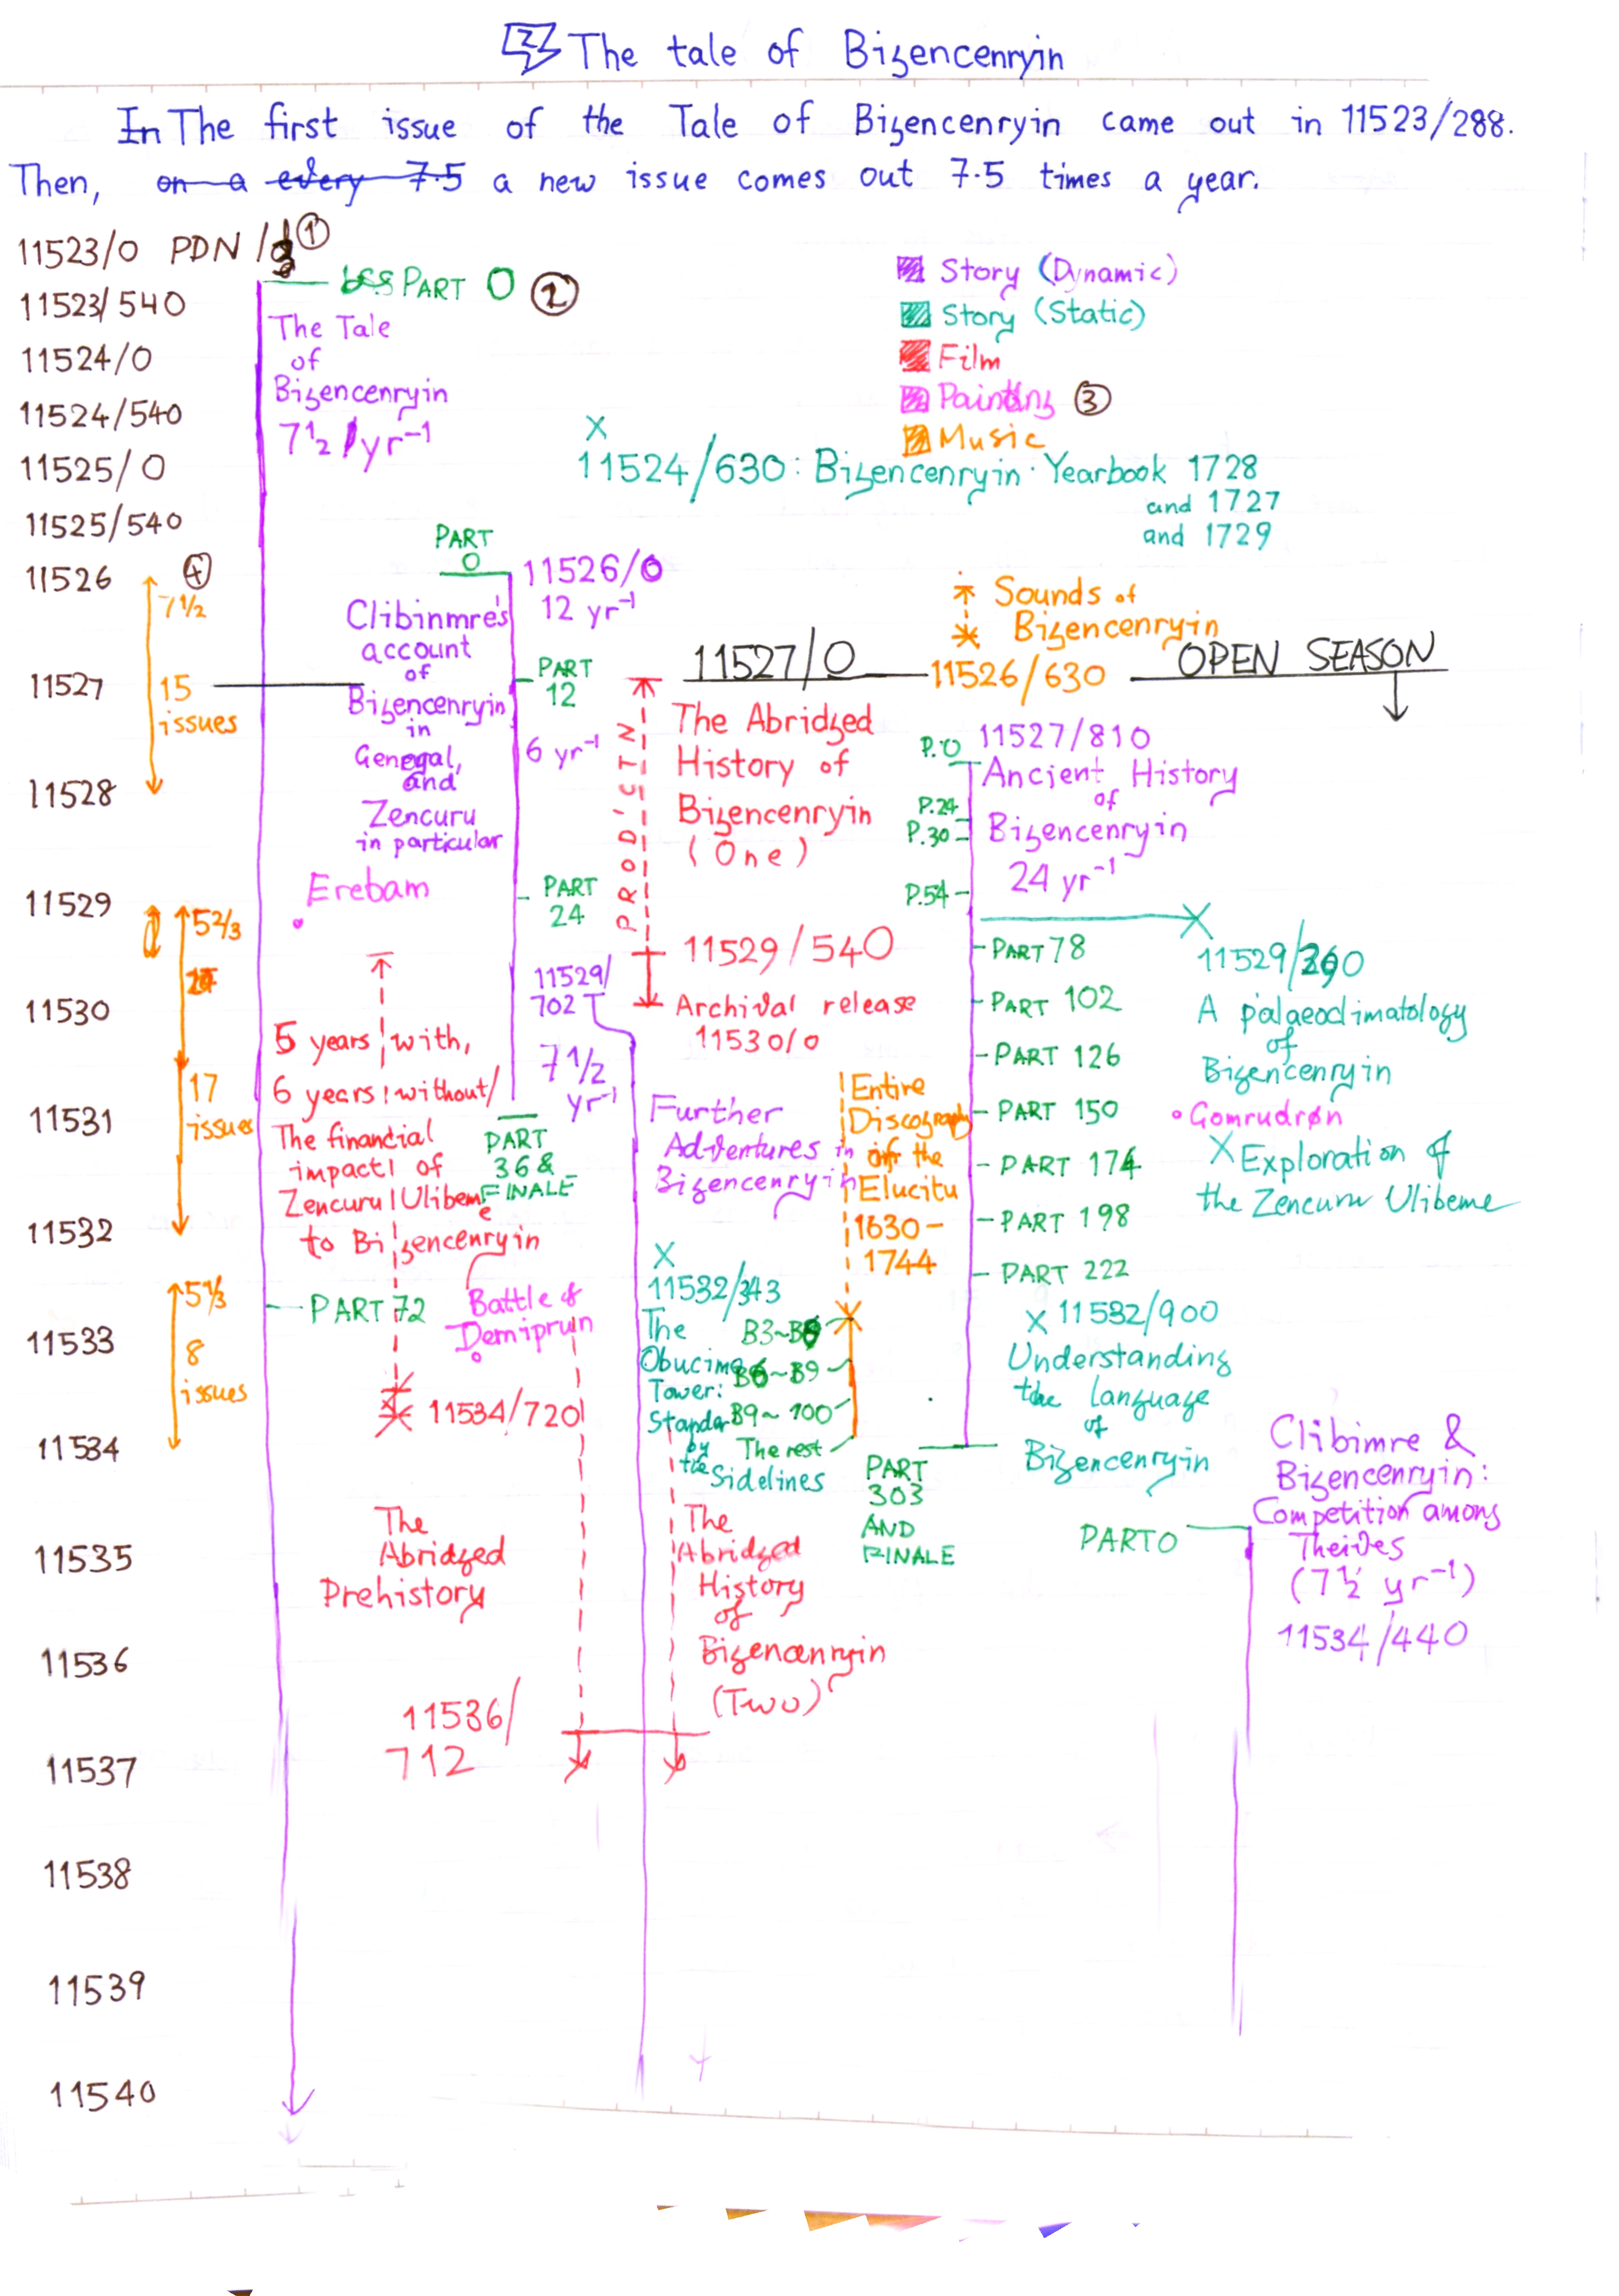 The tale of Bizencenryin
In The first issue of the Tale of Bizencenryin came out in 11523/288.
Then, on a every 7.5 a new issue comes out 7.5 times a year.
11523/0 PDN / ①
PART 0 ②
11523/540
11524/0
11524/540
11525/0
11525/540
11526 ④
11527
11528
11529
11530
11531
11532
11533
11534
11535
11536
11537
11538
11539
11540
The Tale
of
Bizencenryin
7 1/2 / yr⁻¹
Story (Dynamic)
Story (Static)
Film
Painting ③
Music
X
11524/630: Bizencenryin Yearbook 1728
and 1727
and 1729
7 1/2
15
issues
5 2/3
17
issues
5 1/3
8
issues
PART
0
11526/0
12 yr⁻¹
Clibinmre's
account
of
Bizencenryin
in
General,
and
Zencuru
in particular
PART
12
6 yr⁻¹
PART
24
11529/
702
7 1/2
yr⁻¹
PART
36 &
FINALE
Erebam
Sounds of
Bizencenryin
11526/630
11527/0
OPEN SEASON
PROD'CTN
The Abridzed
History of
Bizencenryin
(One)
11529/540
Archival release
11530/0
P.0
11527/810
Ancient History
of
Bizencenryin
24 yr⁻¹
P.24
P.30
P.54
PART 78
PART 102
PART 126
PART 150
PART 174
PART 198
PART 222
PART
303
AND
FINALE
A palaeoclimatology
of
Bizencenryin
Gomrudrøn
X Exploration of
the Zencuru Ulibeme
5 years with,
6 years without/
The financial
impact of
Zencuru Ulibeme
to Bizencenryin
11534/720
PART 72
Battle of
Demiprun
Further
Adventures in
Bizencenryin
Entire
Discography
of the
Elucitu
1630-
1744
X
11532/343
The
Obucime
Tower:
Standar
by
the
Sidelines
B6~B9
B9~100
The rest
X 11532/900
Understanding
the language
of
Bizencenryin
The
Abridzed
Prehistory
The
Abridzed
History
of
Bizencenryin
(Two)
11536/
712
Clibimre &
Bizencenryin:
Competition among
Theives
(7 1/2 yr⁻¹)
11534/440
PART 0